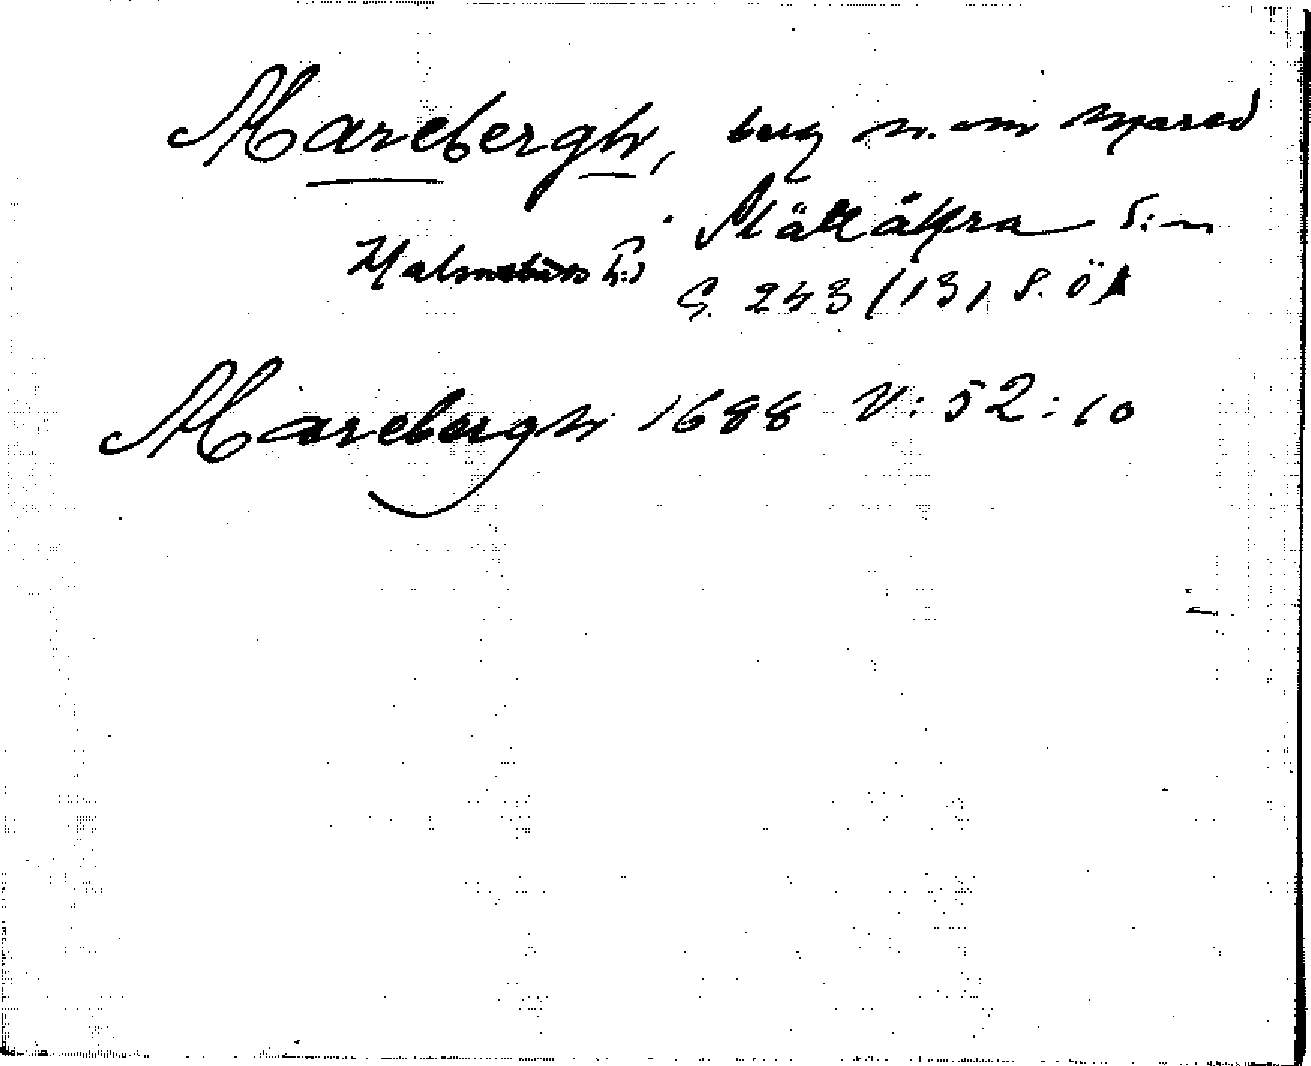 Marebergh, berg n. om Spared
Slättåkra S:n
Halmstads h:d
G. 243 /131 S. ÖA
Marebergh 1688 V: 52: 10